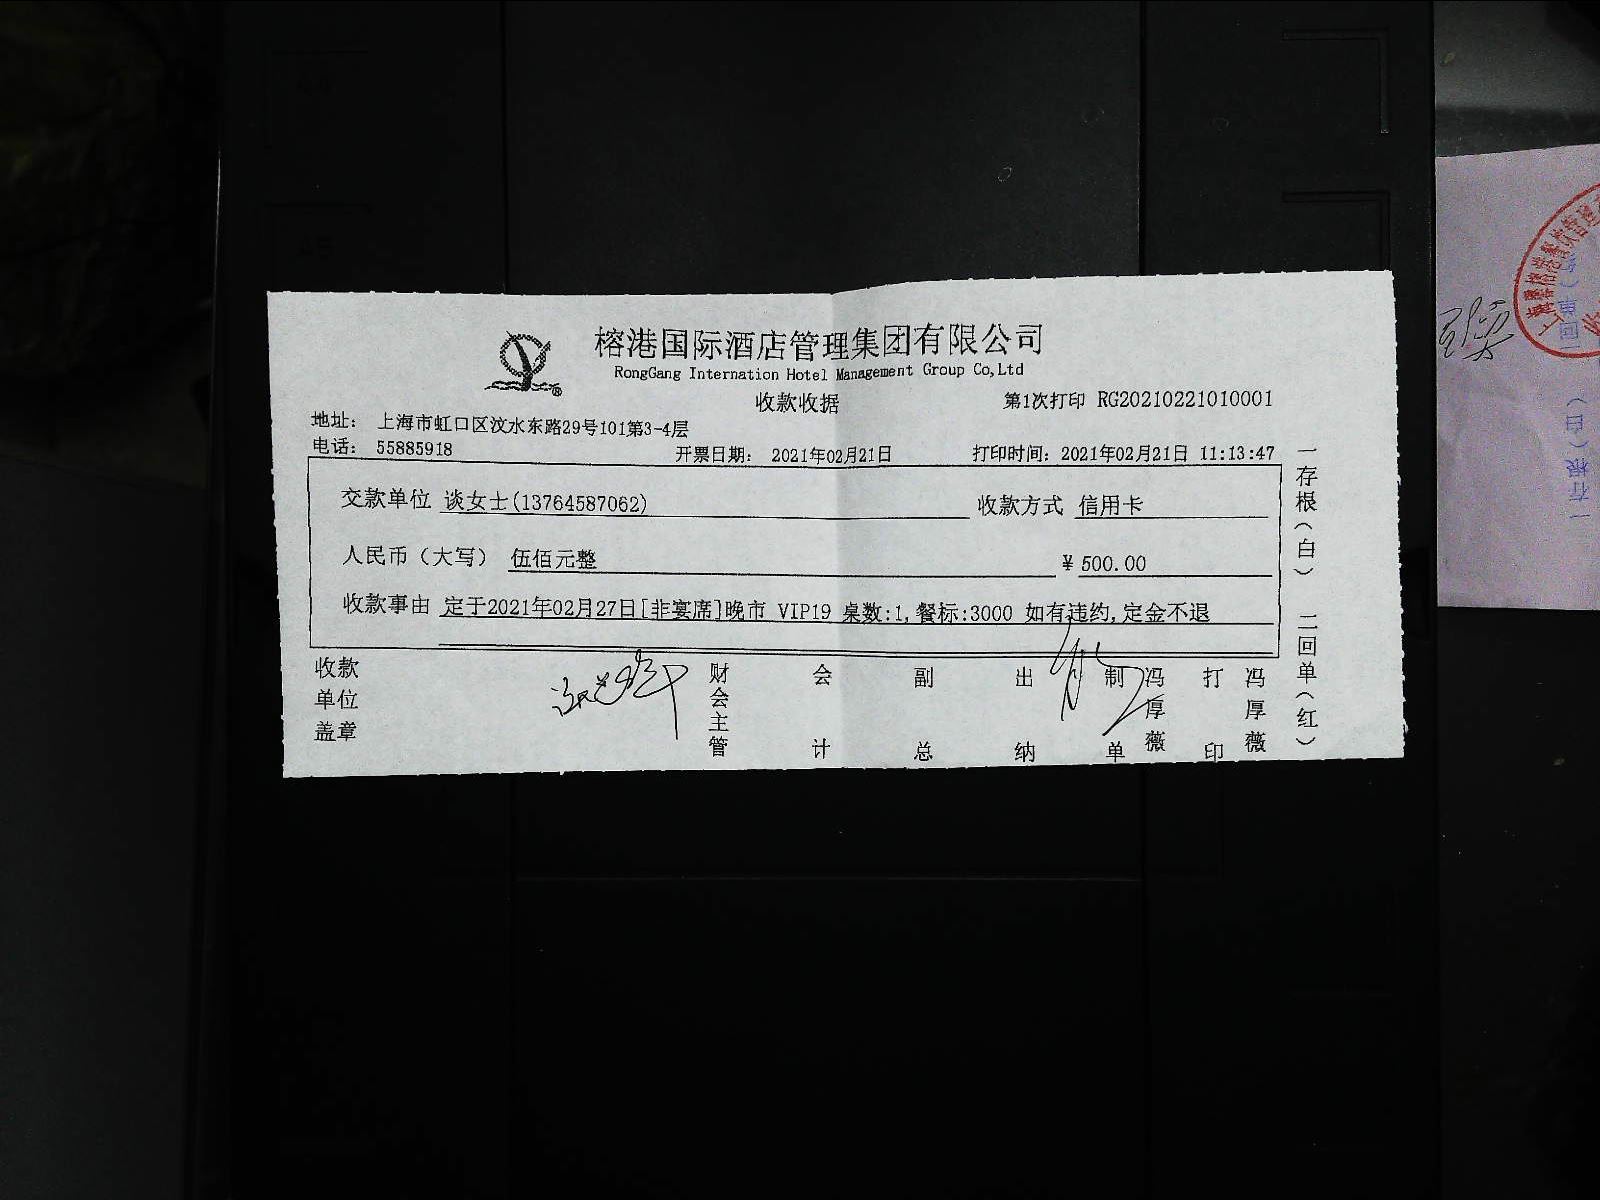 榕港国际酒店管理集团有限公司
RongGang Internation Hotel Management Group Co,Ltd
收款收据
第1次打印 RG20210221010001
地址： 上海市虹口区汶水东路29号101第3-4层
电话： 55885918
开票日期： 2021年02月21日
打印时间: 2021年02月21日 11:13:47
交款单位 谈女士(13764587062)
收款方式 信用卡
人民币（大写） 伍佰元整
¥ 500.00
收款事由 定于2021年02月27日[非宴席]晚市 VIP19 桌数:1,餐标:3000 如有违约,定金不退
收款单位盖章
财会主管
会计
副总
出纳
制单 冯厚薇
打印 冯厚薇
一存根(白) 二回单(红)
一存根(白)